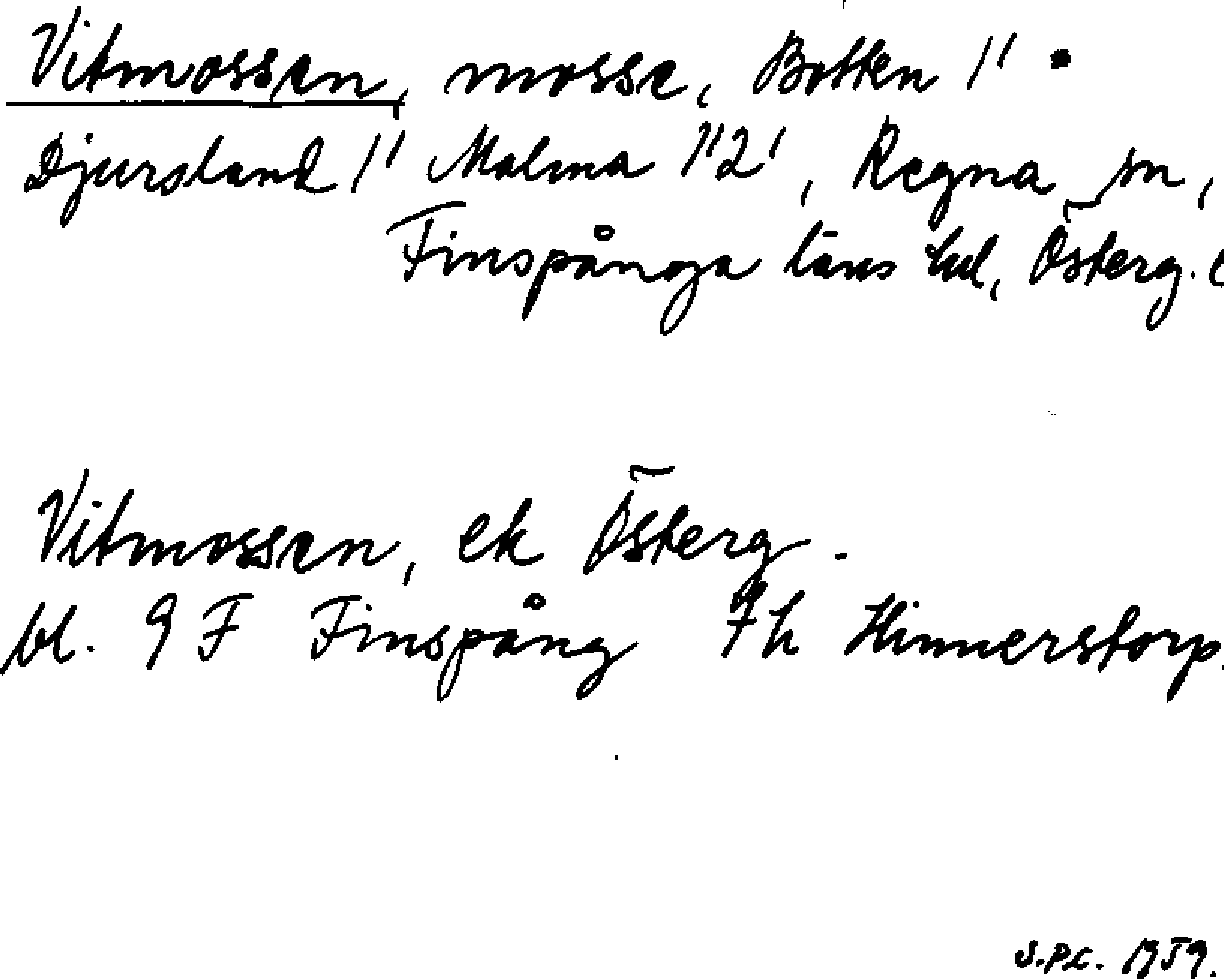 Vitmossen, mosse, Botten 1¹
Djursland 1¹ Malma 1¹2¹, Regna sn,
Finspånga läns hd, Österg. l
Vitmossen, ek Österg.
bl. 9 F Finspång 7h Hinnerstorp.
1959.